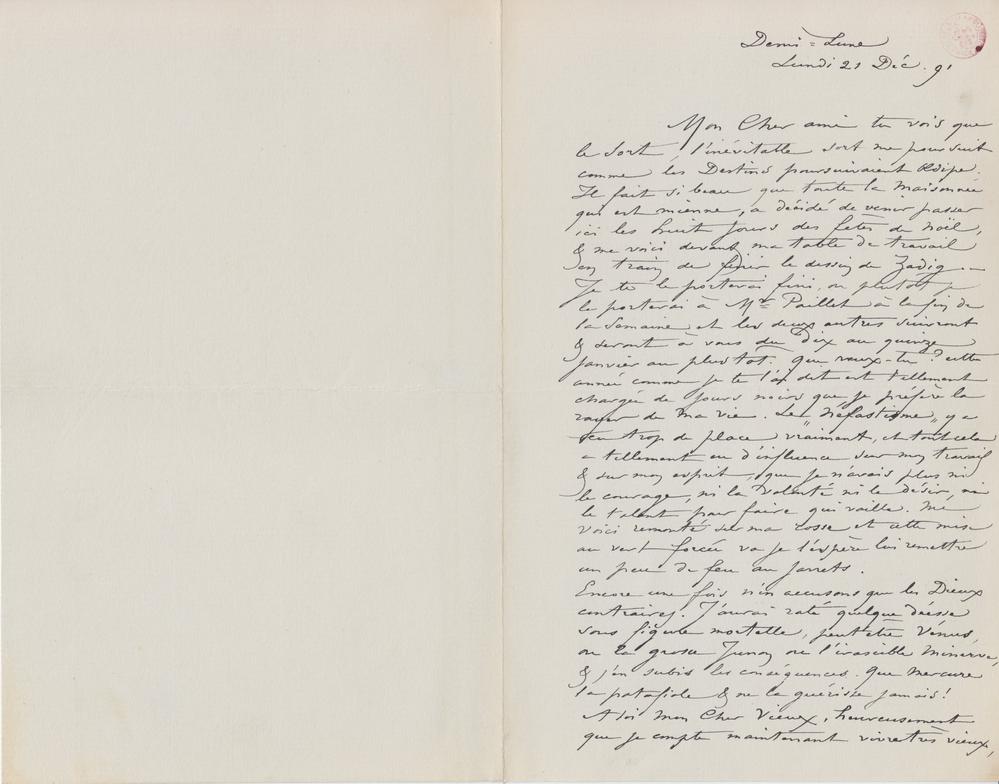 Demi-Lune
Lundi 21 Déc. 91
Mon Cher ami tu vois que
le sort, l'inévitable sort me poursuit
comme les Destins poursuivaient Œdipe.
Il fait si beau que toute la maisonnée
qui est mienne, a décidé de venir passer
ici les huit jours des fêtes de Noël,
& me voici devant ma table de travail
en train de finir le dessin de Zadig —
Je te le porterai fini, ou plutôt je
le porterai à Mr Paillet à la fin de
la semaine et les deux autres suivront
& seront à vous du Dix au quinze
janvier au plus tôt. Que veux-tu? cette
année comme je te l'ai dit est tellement
chargée de jours noirs que je préfère la
rayer de ma vie. Le "Néfastisme" y a
tenu trop de place vraiment, et tout cela
a tellement eu d'influence sur mon travail
& sur mon esprit, que je n'avais plus ni
le courage, ni la volonté ni le désir, ni
le talent pour faire qui vaille. Me
voici remonté sur ma rosse et cette mise
au vert forcée va je l'espère lui remettre
un peu de feu au jarrets.
Encore une fois n'en accusons que les Dieux
contraires. J'aurai raté quelque déesse
sous figure mortelle, peut être Vénus,
ou la grosse Junon ou l'irascible Minerve,
& j'en subis les conséquences. Que Mercure
la patafiole & ne la guérisse jamais!
A toi mon Cher Vieux, heureusement
que je compte maintenant vivre très vieux,